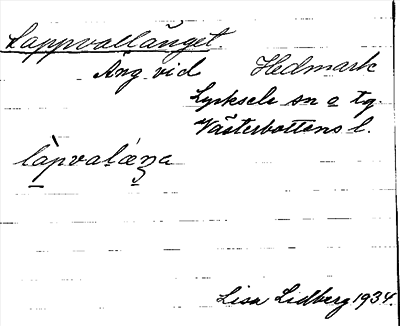 Lappvallänget.
Äng vid Hedmark
Lycksele sn o tg
Västerbottens l.
làpvaláŋa
Lisa Lidberg 1934.